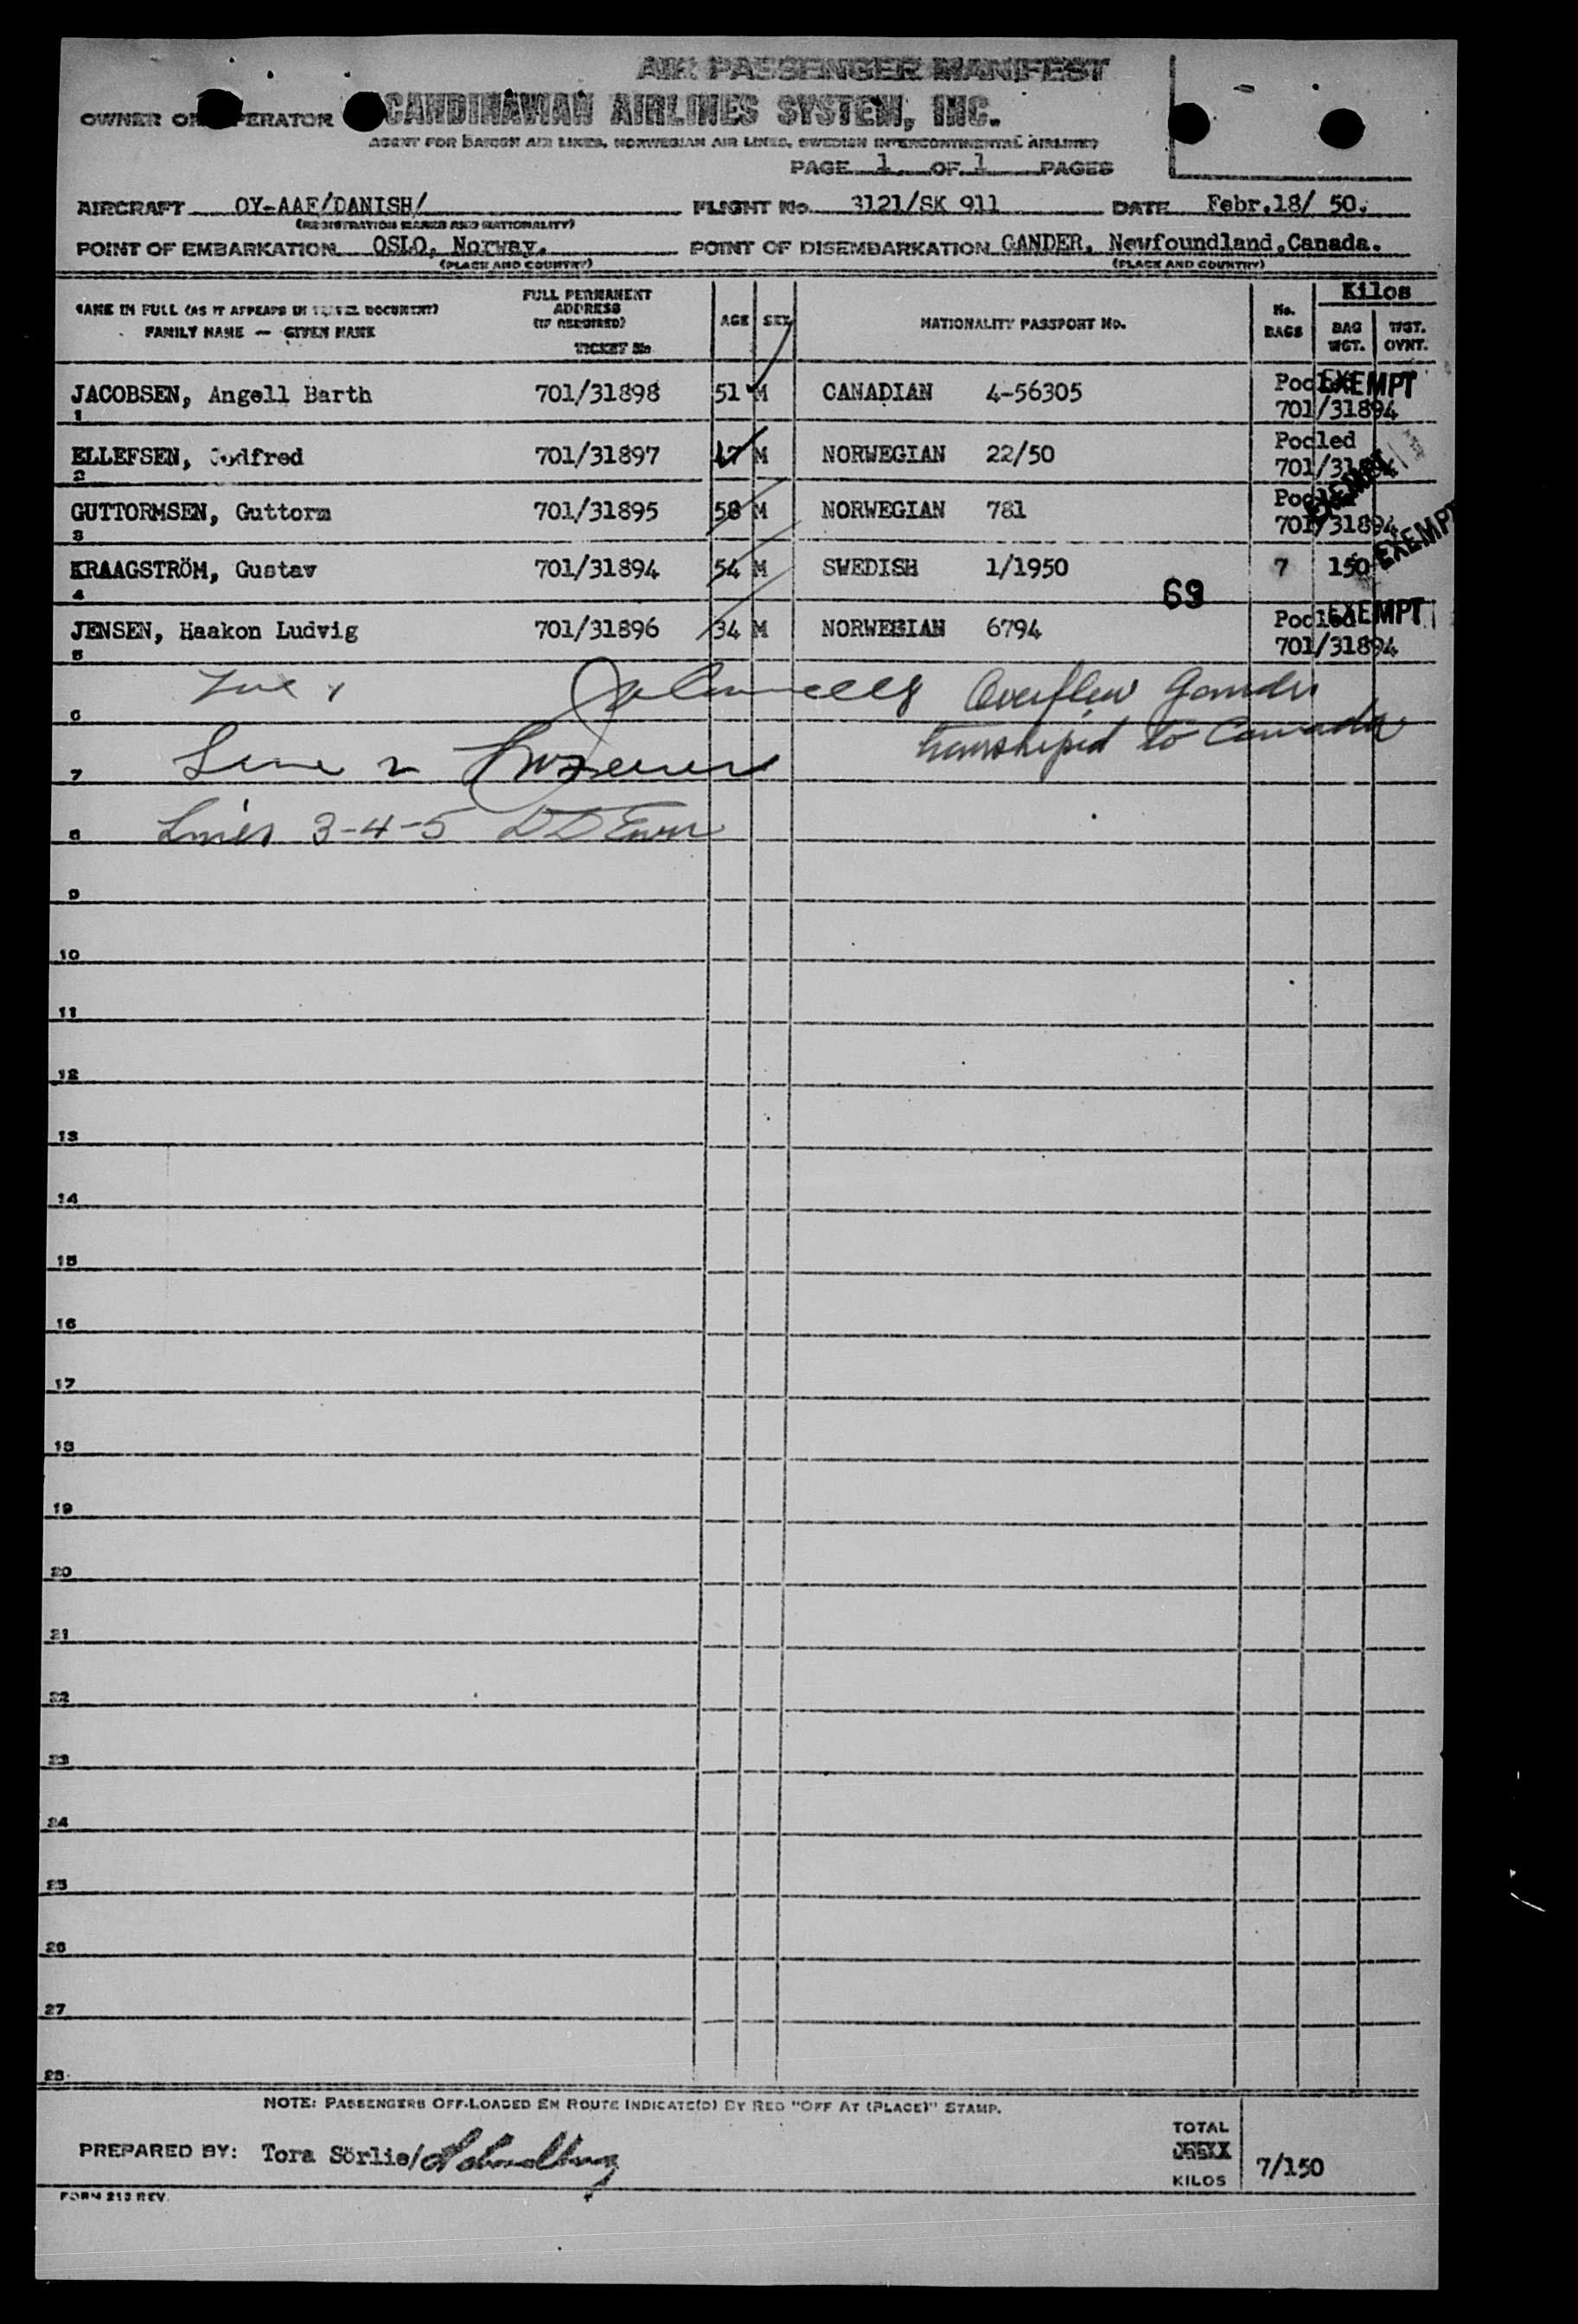 AIR PASSENGER MANIFEST
OWNER OR OPERATOR SCANDINAVIAN AIRLINES SYSTEM, INC.
AGENT FOR DANISH AIR LINES, NORWEGIAN AIR LINES, SWEDISH INTERCONTINENTAL AIRLINES
PAGE 1 OF 1 PAGES
AIRCRAFT OY-AAF/DANISH/ FLIGHT No. 3121/SK 911 DATE Febr.18/ 50.
(REGISTRATION MARKS AND NATIONALITY)
POINT OF EMBARKATION OSLO, Norway. POINT OF DISEMBARKATION GANDER, Newfoundland,Canada.
(PLACE AND COUNTRY) (PLACE AND COUNTRY)
NAME IN FULL (AS IT APPEARS IN TRAVEL DOCUMENT) FAMILY NAME — GIVEN NAME
FULL PERMANENT ADDRESS (IF REQUIRED) TICKET No
AGE SEX NATIONALITY PASSPORT No. No. BAGS Kilos BAG WGT. WGT. OVNT.
1 JACOBSEN, Angell Barth 701/31898 51 M CANADIAN 4-56305 Pooled 701/31894 EXEMPT
2 ELLEFSEN, Godfred 701/31897 47 M NORWEGIAN 22/50 Pooled 701/31894 EXEMPT
3 GUTTORMSEN, Guttorm 701/31895 58 M NORWEGIAN 781 Pooled 701/31894
4 KRAAGSTRÖM, Gustav 701/31894 54 M SWEDISH 1/1950 69 7 150 EXEMPT
5 JENSEN, Haakon Ludvig 701/31896 34 M NORWEGIAN 6794 Pooled 701/31894 EXEMPT
6 Line 1 Overflew Gander
transhiped to Canada
7 Line 2
8 Lines 3-4-5
9
10
11
12
13
14
15
16
17
18
19
20
21
22
23
24
25
26
27
28
NOTE: PASSENGERS OFF-LOADED EN ROUTE INDICATE(D) BY RED "OFF AT (PLACE)" STAMP.
PREPARED BY: Tora Sörlie/
TOTAL
KILOS 7/150
FORM 213 REV.